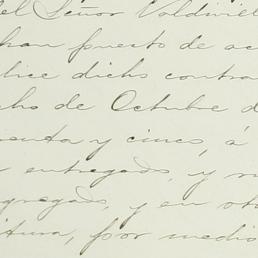 el Señor Valdivie
han puesto de ac
lice dicho contra
cho de Octubre d
enta y cinco, á
entregado, y
gregado, y en ot
itura, por medio